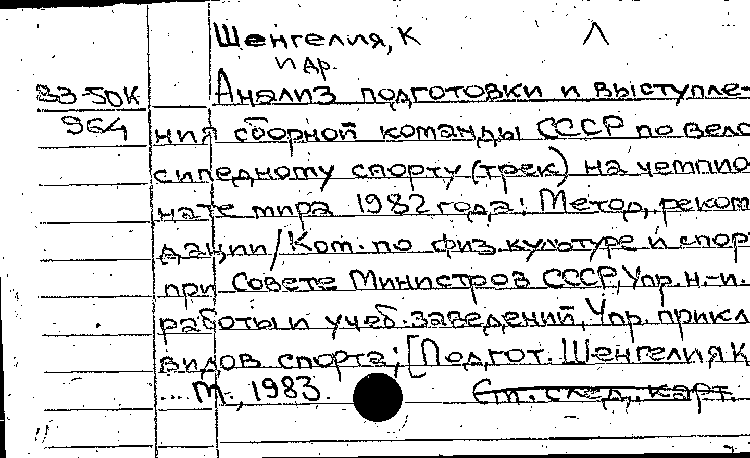 Шенгелия, К Л
и др.
33-50К Анализ подготовки и выступле-
964 ния сборной команды СССР по вело
сипедному спорту (трек) на чемпио
нате мира 1982 года: Метод. реком
дации / Ком. по физ. культуре и спор
при Совете Министров СССР, Упр. н.-и.
работы и учеб. заведений, Упр. прикл
видов спорта; [Подгот. Шенгелия К
.... М., 1983. См. след. карт.